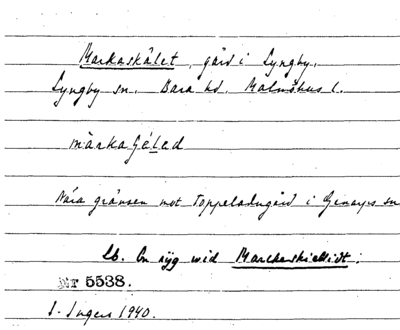 Markaskälet, gård i Lyngby,
Lyngby sn. Bara hd. Malmöhus l.
màrkaʃé̱led
Nära gränsen mot Toppeladugård i Genarps sn
Lb. En ryg wid Marckerskiellidt:
Nr 5538.
I. Ingers 1940.